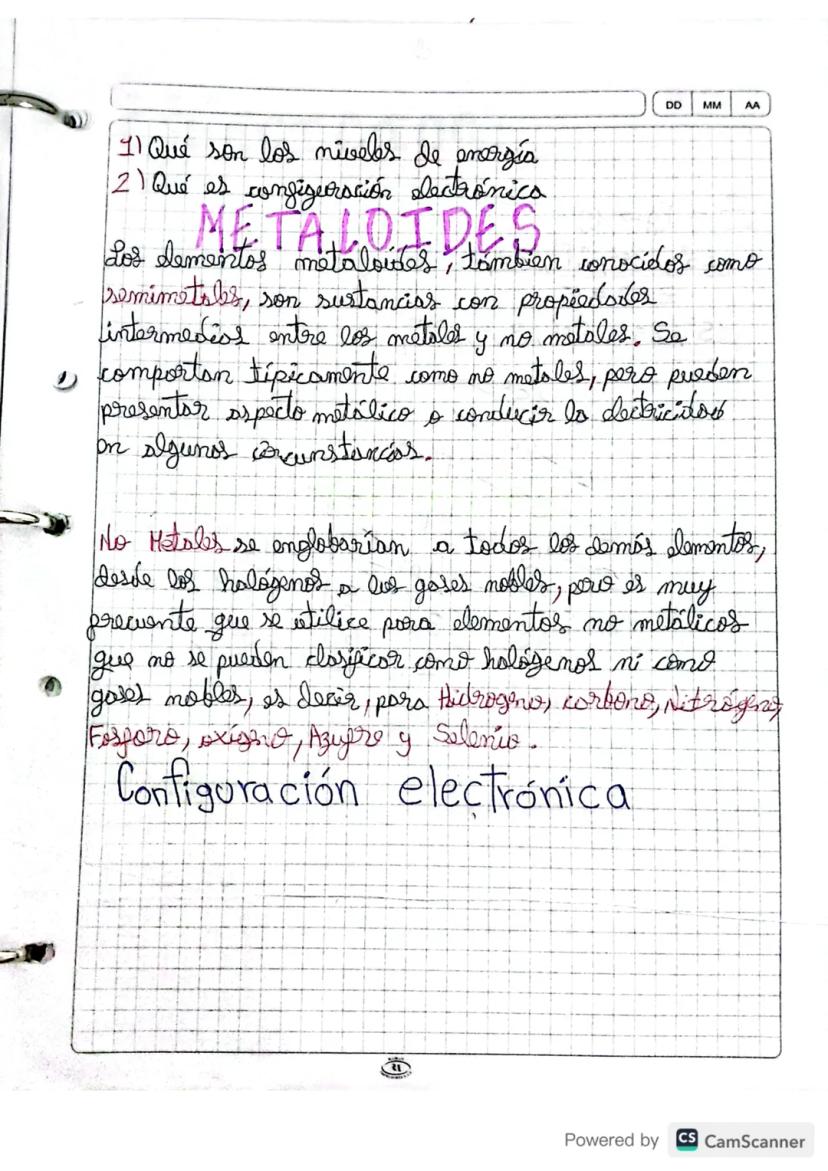 DD MM AA
1) Qué son los niveles de energía
2) Qué es configuración electrónica
METALOIDES
Los elementos metaloides, tambien conocidos como
semimetales, son sustancias con propiedades
intermedias entre los metales y no metales. Se
comportan típicamente como no metales, pero pueden
presentar aspecto metálico o conducir la electricidad
en algunas circunstancias.
No Metales se englobarían a todos los demás elementos,
desde los halógenos a los gases nobles, pero es muy
frecuente que se utilice para elementos no metálicos
que no se pueden clasificar como halógenos ni como
gases nobles, es decir, para Hidrogeno, carbono, Nitrógeno,
Fosforo, oxígeno, Azufre y Selenio.
Configuración electrónica
Powered by CS CamScanner